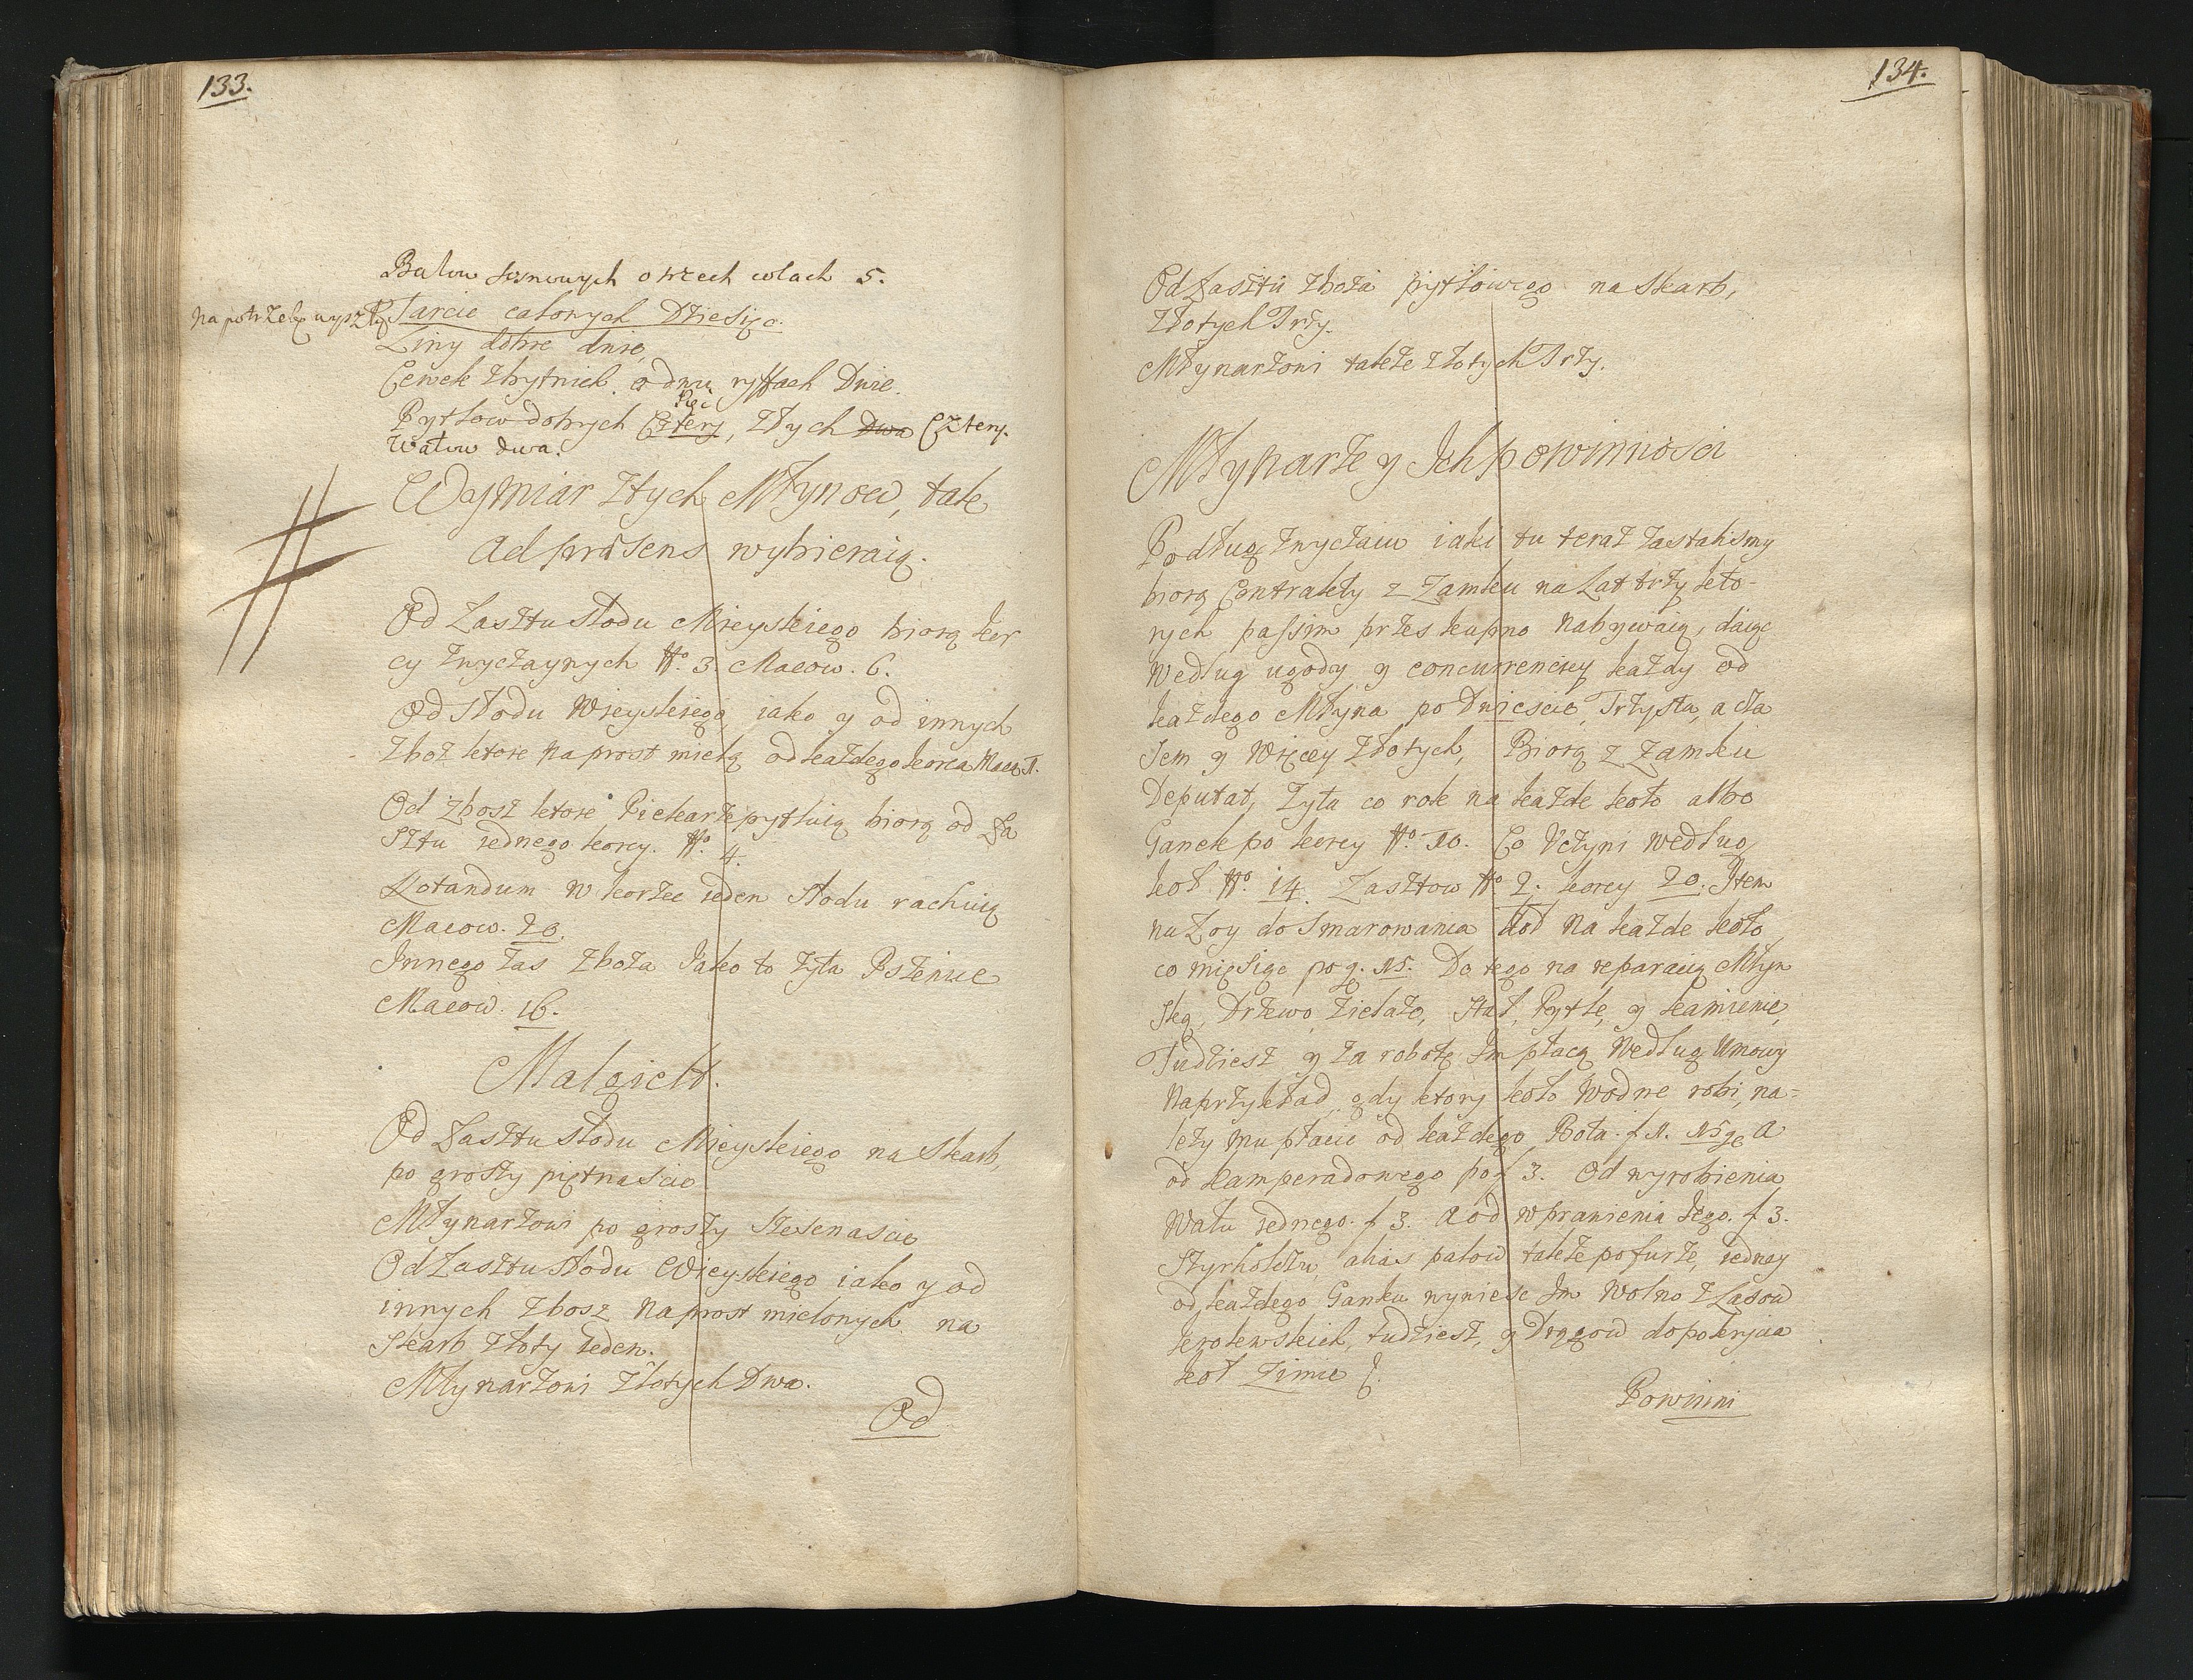 133.
Balow sosnowych o trzech colach 5.
Na potrzebę wyszły Tarcic calowych Dziesięc.
Liny dobre dwie,
Cewek zbytnich o dwu ryffach Dwie.
Pięć
Pytlow dobrych Cztery, Złych Dwa Cztery.
Wałow dwa.
Wymiar z tych Młynow, tak
Ad præsens wybieraią.
Od Łasztu słodu Mieyskiego biorą kor
cy zwyczaynych No. 3. Macow. 6.
Od słodu Wieyskiego, iako y od innych
Zboż ktore na prost mielą od każdego korca Maca 1.
Od zbosz ktore Piekarze pytluią biorą od Ła
sztu iednego korcy. No. 4.
Notandum w korzec ieden słodu rachuią
Macow. 20.
Innego zas zboża Iako to żyta Pszenice
Macow. 16.
Malgielt.
Od Łasztu słodu Mieyskiego na Skarb,
po groszy piętnascie
Młynarzowi po groszy szesnascie
Od Łasztu słodu Wieyskiego iako y od
innych zbosz na prost mielonych na
Skarb złoty ieden.
Młynarzowi złotych Dwa.
Od
134.
Od Łasztu zboża pytlowego na Skarb,
Złotych Trzy.
Młynarzowi także złotych Trzy.
Młynarze y Ich powinności
Podług zwyczaiu iaki tu teraz zastalismy
biorą Contrakty z Zamku na Lat trzy kto-
rych passim przes kupno nabywaią, daiąc
według ugody y concurrencyy każdy od
każdego Młyna po Dwiescie, Trzysta, a cza
sem y więcey złotych, Biorą z Zamku
Deputat, żyta co rok na każde koło albo
Ganek po korcy No. 10. Co Uczyni według
koł No. 14. Łasztow No. 2. korcy 20. Item
na Łoy do smarowania koł na każde koło
co miesiąc po g. 15. Do tego na reparacią Młyn
ską, Drzewo, żielazo, stal, Pytle, y kamienie,
Tudziesz y za robotę Im płacą według Umowy
Naprzykład gdy ktory koło wodne robi, na-
leży mu płacic od każdego Koła. f 1. 15 ge a
od kamperadowego po f 3. Od wyrobienia
Wału iednego. f 3. a od wprawienia Iego. f 3.
Sztyrholczu, alias palow takze po furze, iedney
od każdego Ganku wyniesc Im wolno z Lasow
krolewskich, tudziesz, y Drągow do pokrycia
koł Zimie
Powinni